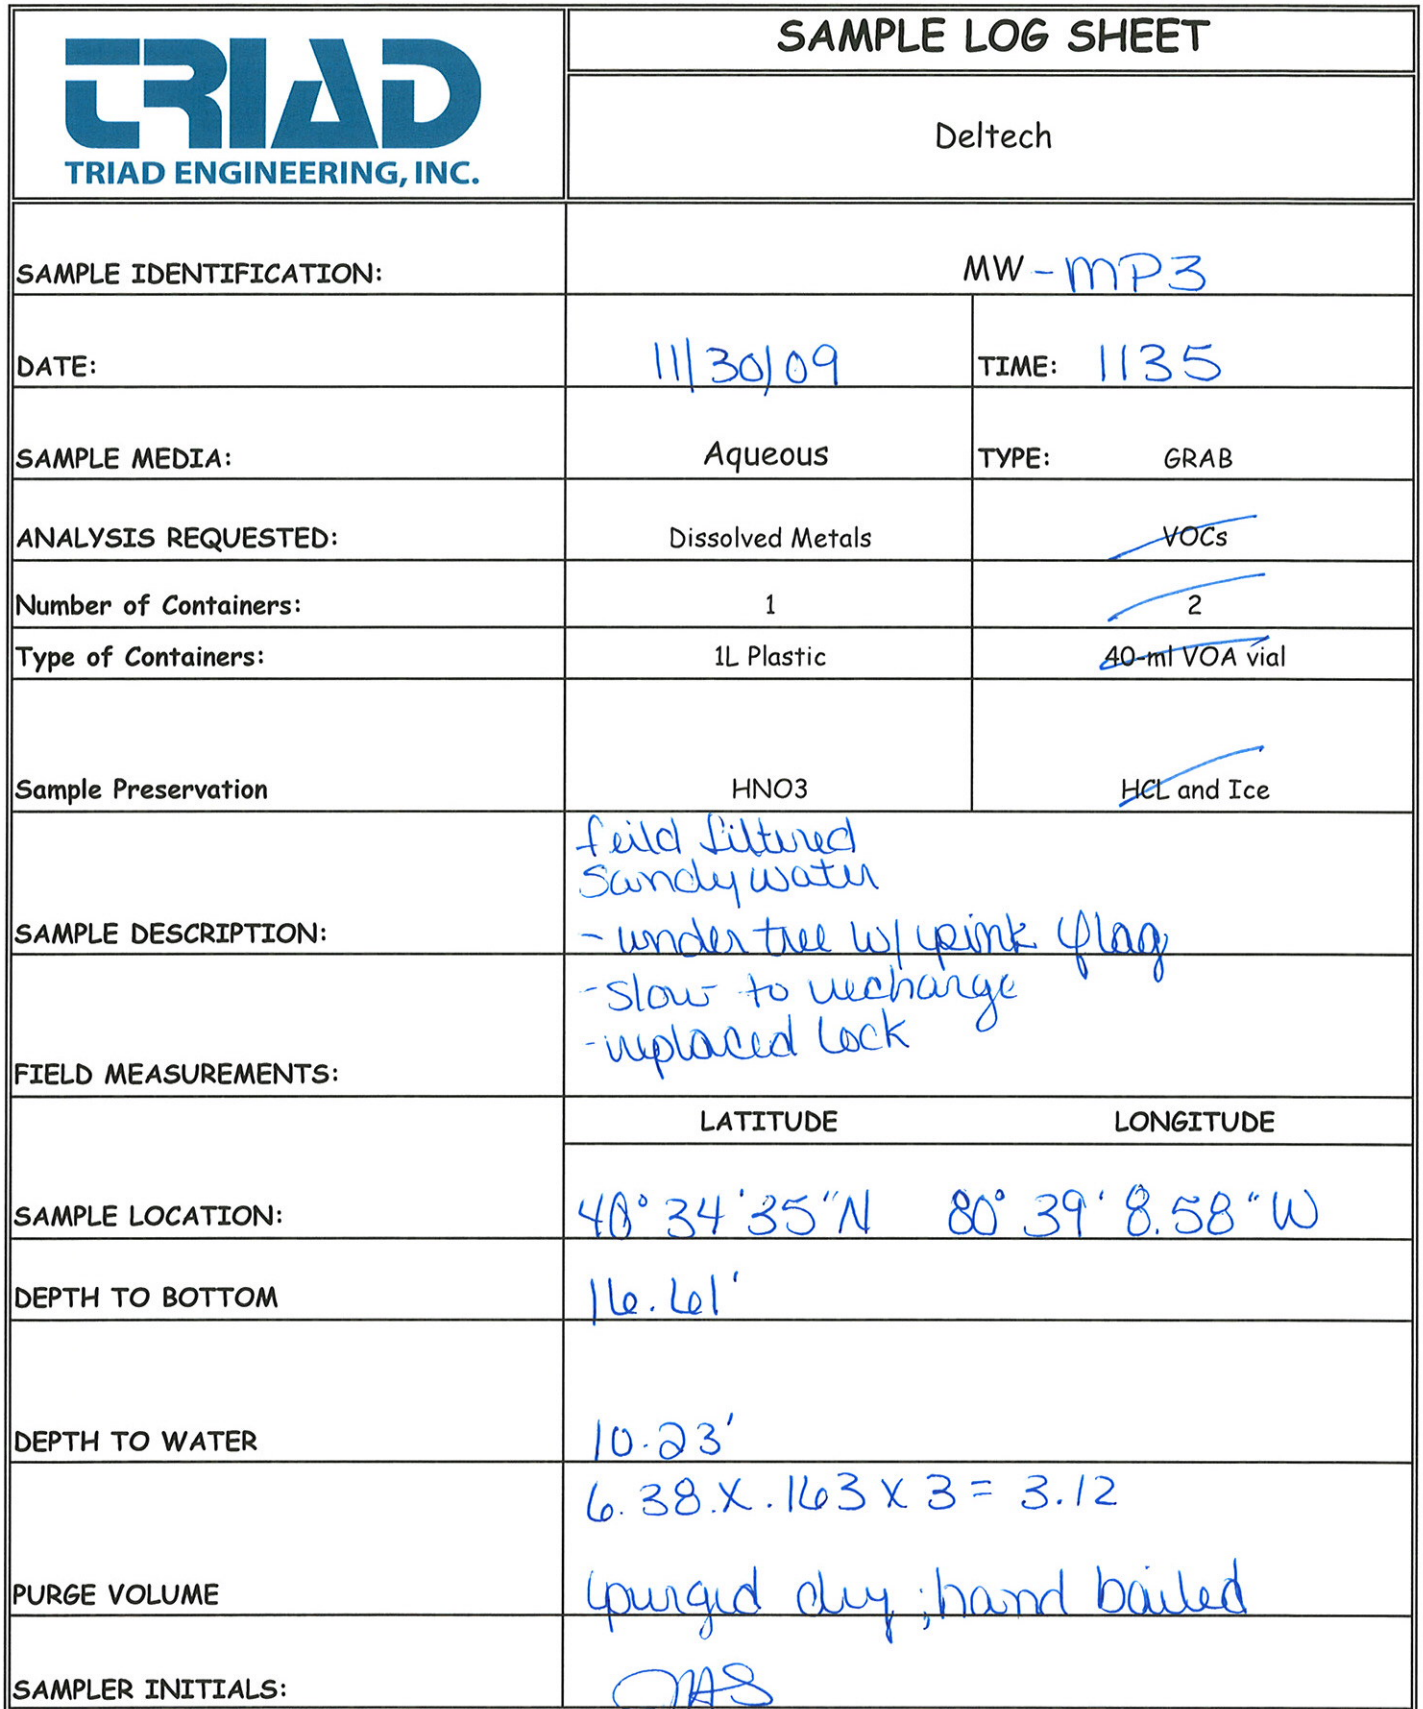 TRIAD
TRIAD ENGINEERING, INC.
SAMPLE LOG SHEET
Deltech
SAMPLE IDENTIFICATION: MW-MP3
DATE: 11/30/09 TIME: 1135
SAMPLE MEDIA: Aqueous TYPE: GRAB
ANALYSIS REQUESTED: Dissolved Metals VOCs
Number of Containers: 1 2
Type of Containers: 1L Plastic 40-ml VOA vial
Sample Preservation HNO3 HCL and Ice
feild filtured
Sandy water
SAMPLE DESCRIPTION: - under tree w/ pink flag
-slow to recharge
-replaced lock
FIELD MEASUREMENTS:
LATITUDE LONGITUDE
SAMPLE LOCATION: 40° 34' 35"N 80° 39' 8.58"W
DEPTH TO BOTTOM 16.61'
DEPTH TO WATER 10.23'
6.38 x .163 x 3 = 3.12
PURGE VOLUME purged dry; hand bailed
SAMPLER INITIALS: